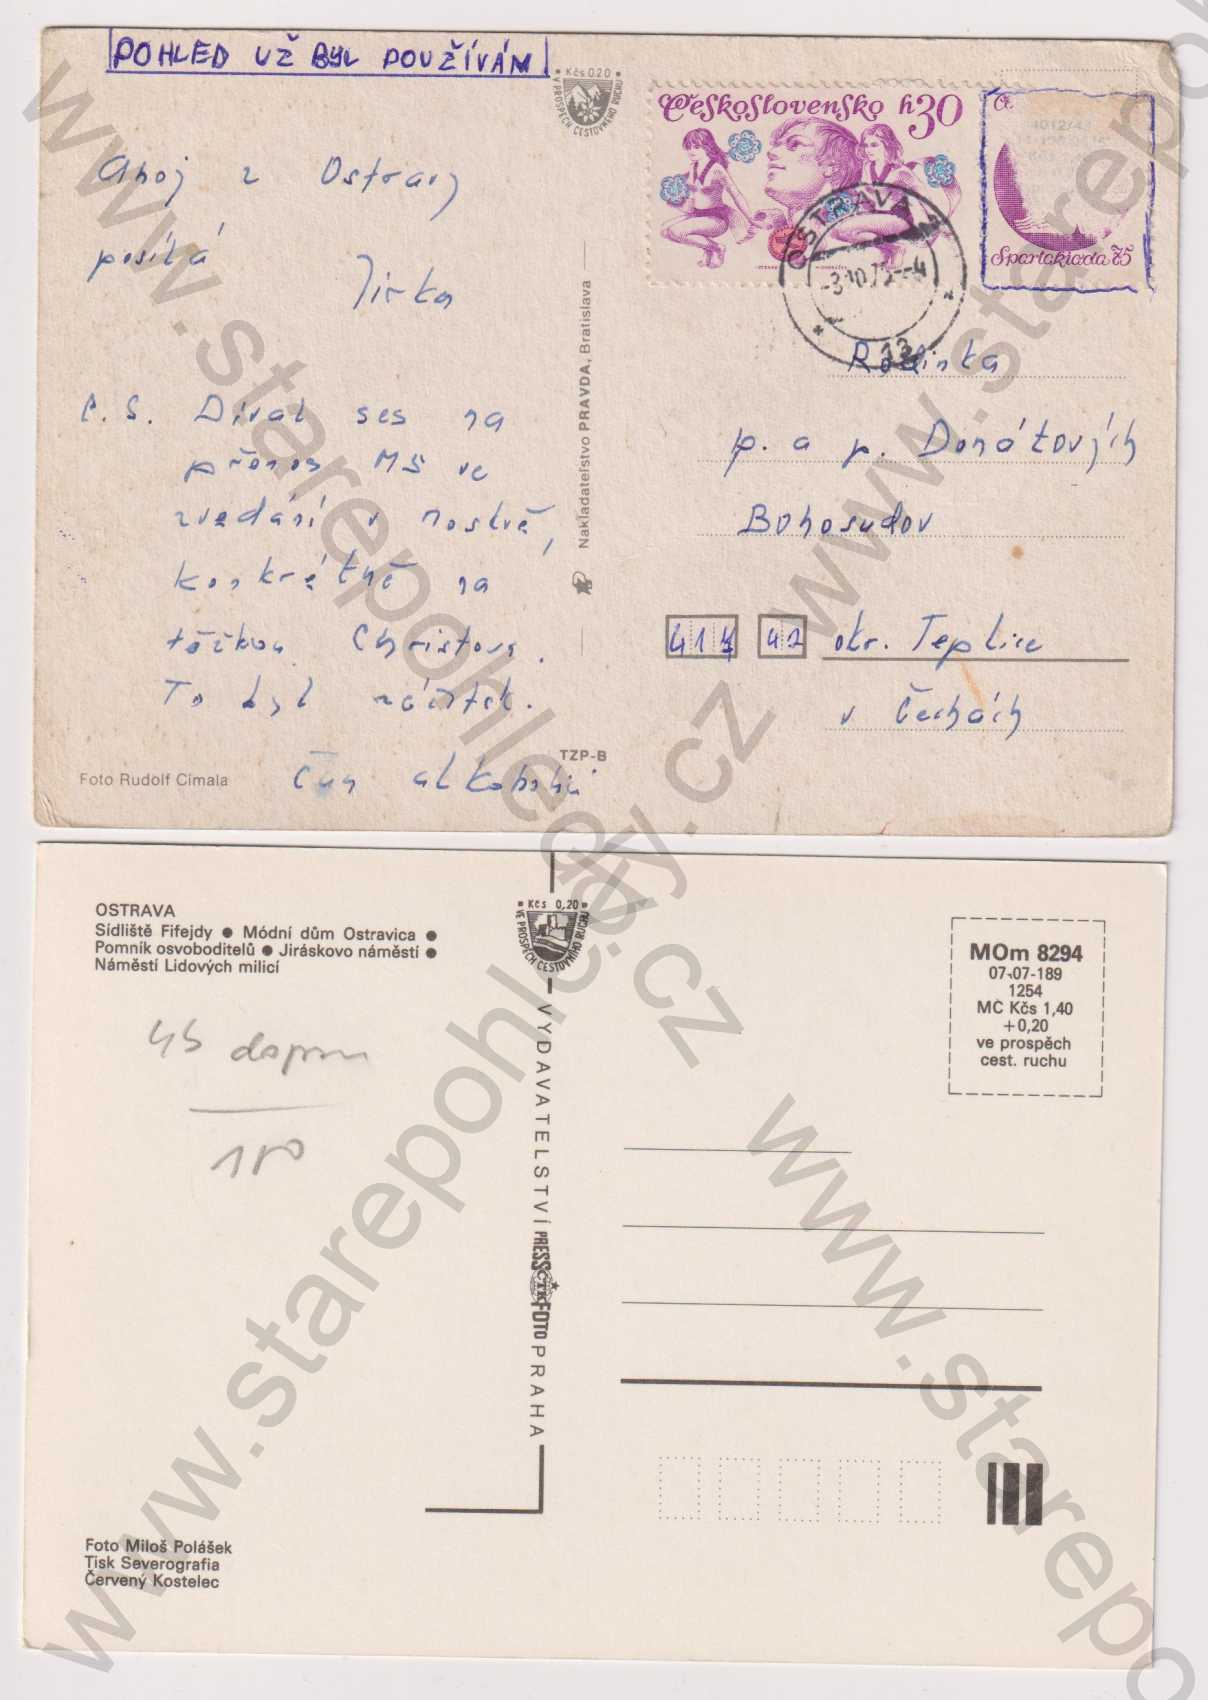 POHLED UŽ BYL POUŽÍVÁM
Kčs 0.20
V PROSPĚCH CESTOVNÉHO RUCHU
Československo h30
Spartakiada 75
OSTRAVA
13
Ahoj z Ostravy
posílá
Jirka
P. S. Díval ses na
přenos MS ve
zvedání v Moskvě,
konkrétně na
těžkou Christova.
To byl zážitek.
Foto Rudolf Cimala
TZP-B
Nakladateľstvo PRAVDA, Bratislava
Rodinka
p. a p. Donátových
Bohosudov
417 42 okr. Teplice
v Čechách
OSTRAVA
Sídliště Fifejdy ● Módní dům Ostravica ●
Pomník osvoboditelů ● Jiráskovo náměstí ●
Náměstí Lidových milicí
45
180
Kčs 0,20
VE PROSPĚCH CESTOVNÍHO RUCHU
VYDAVATELSTVÍ PRESSFOTO PRAHA
ČTK
MOm 8294
07-07-189
1254
MC Kčs 1,40
+0,20
ve prospěch
cest. ruchu
Foto Miloš Polášek
Tisk Severografia
Červený Kostelec
www.starepohledy.cz
www.starepohledy.cz